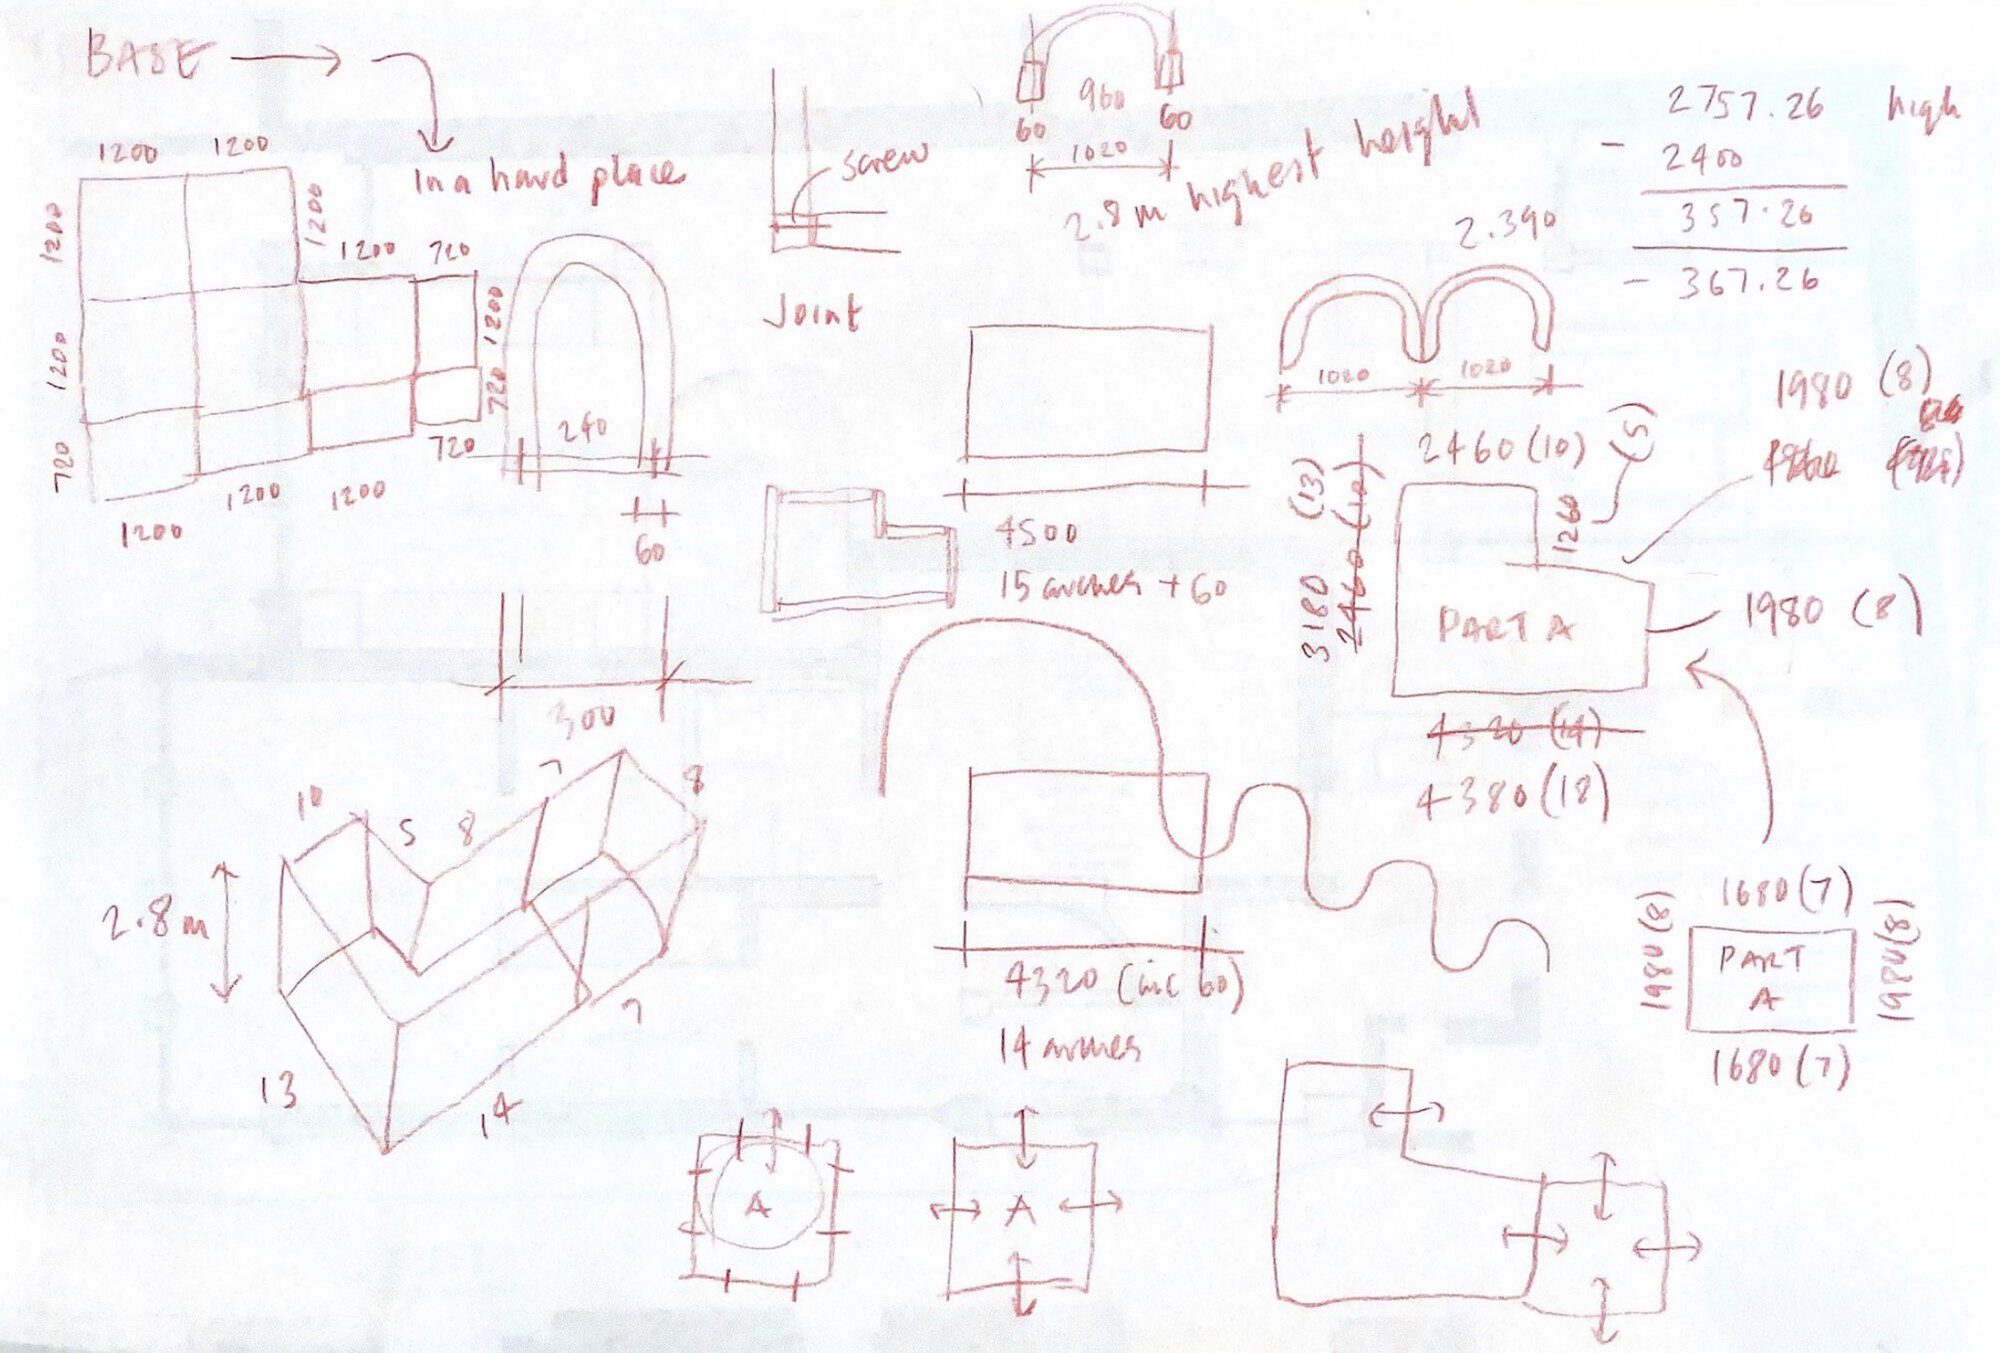 BASE
In a hard place
1200 1200
1200
1200
1200 720
1200
1200
720
720
720
1200 1200
1200
240
60
300
screw
Joint
960
60 60
1020
2.8 m highest height
2757.26 high
- 2400
357.26
- 367.26
2.390
1020 1020
4500
15 arches + 60
1980 (8)
2460 (10)
(5)
1260
3180 (13)
2460 (10)
PART A
1980 (8)
4320 (14)
4380 (18)
10 5 8 7 8
2.8 m
13 14 7
4320 (inc 60)
14 arches
1680 (7)
1980 (8)
PART
A
1980 (8)
1680 (7)
A
A